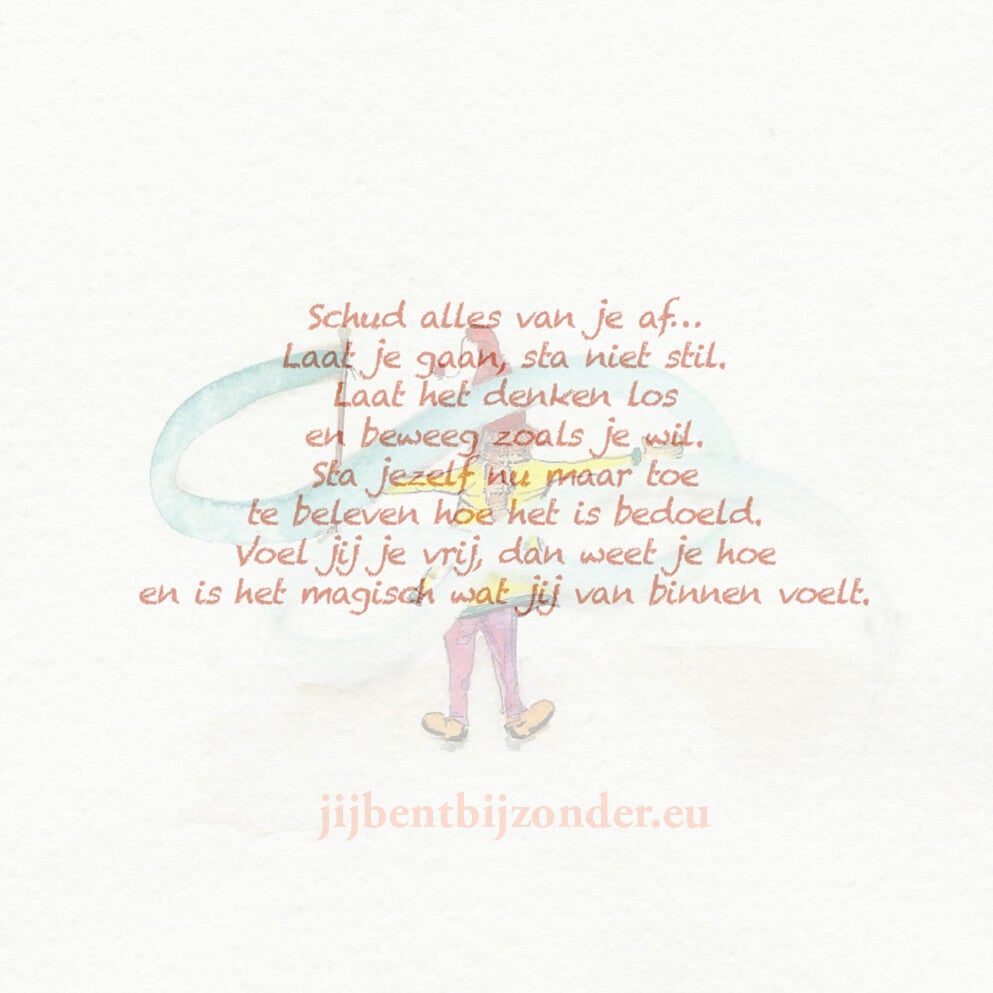 Schud alles van je af...
Laat je gaan, sta niet stil.
Laat het denken los
en beweeg zoals je wil.
Sta jezelf nu maar toe
te beleven hoe het is bedoeld.
Voel jij je vrij, dan weet je hoe
en is het magisch wat jij van binnen voelt.
jijbentbijzonder.eu